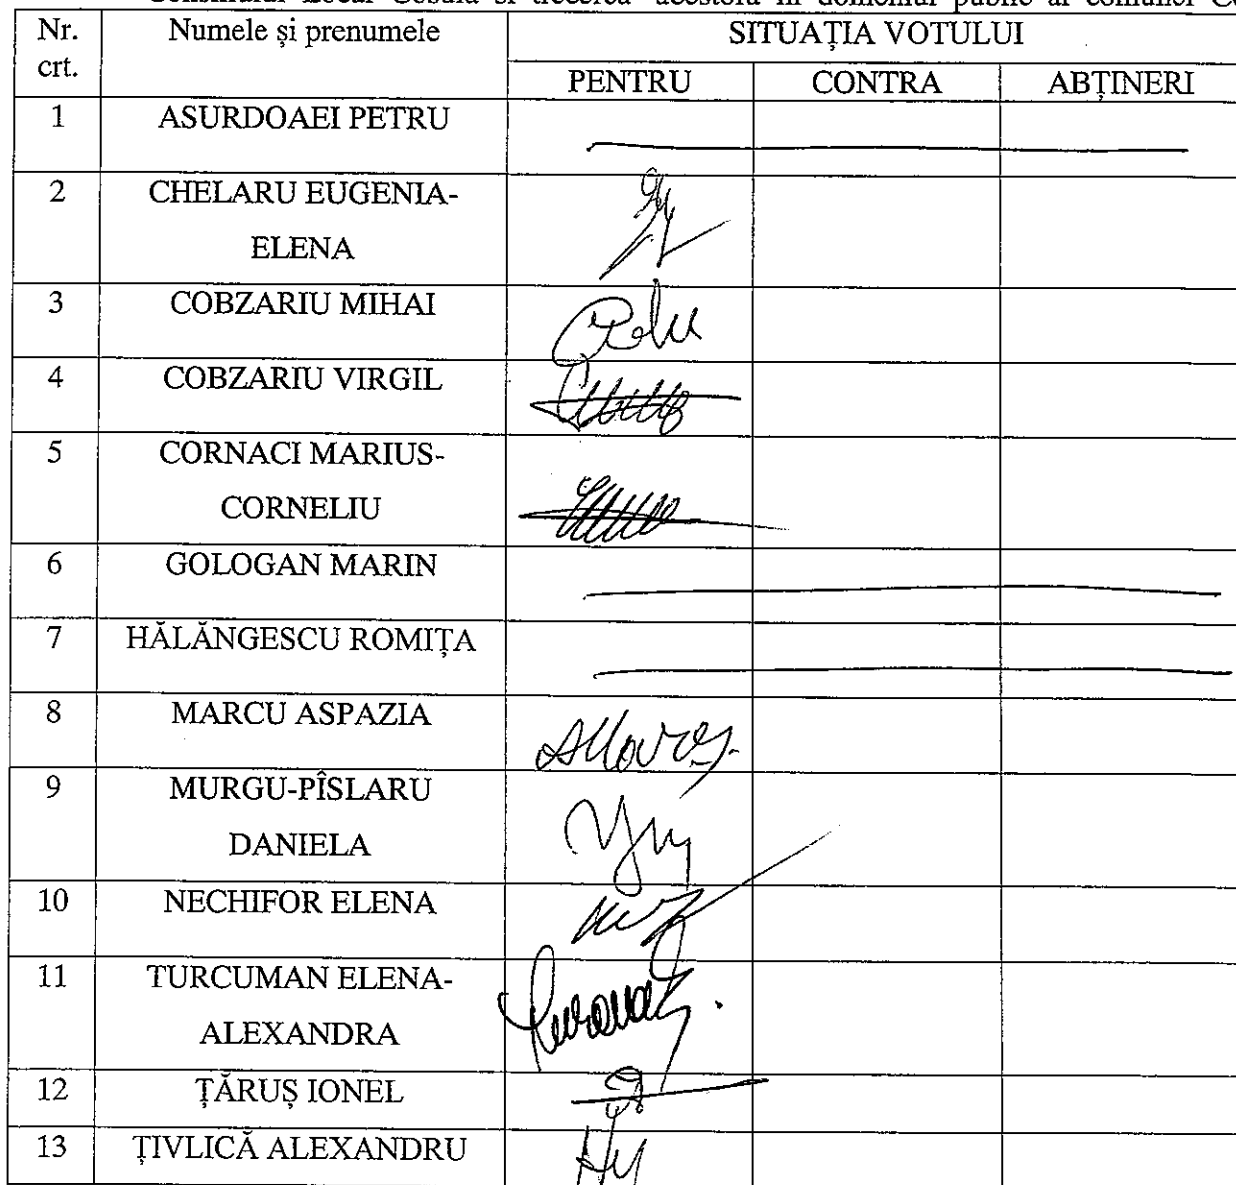 Consiliului Local Coșula și trecerea acestora în domeniul public al comunei
Nr. crt. Numele și prenumele SITUAȚIA VOTULUI
PENTRU CONTRA ABȚINERI
1 ASURDOAEI PETRU
2 CHELARU EUGENIA-
ELENA
3 COBZARIU MIHAI
4 COBZARIU VIRGIL
5 CORNACI MARIUS-
CORNELIU
6 GOLOGAN MARIN
7 HĂLĂNGESCU ROMIȚA
8 MARCU ASPAZIA
9 MURGU-PÎSLARU
DANIELA
10 NECHIFOR ELENA
11 TURCUMAN ELENA-
ALEXANDRA
12 ȚĂRUȘ IONEL
13 ȚIVLICĂ ALEXANDRU